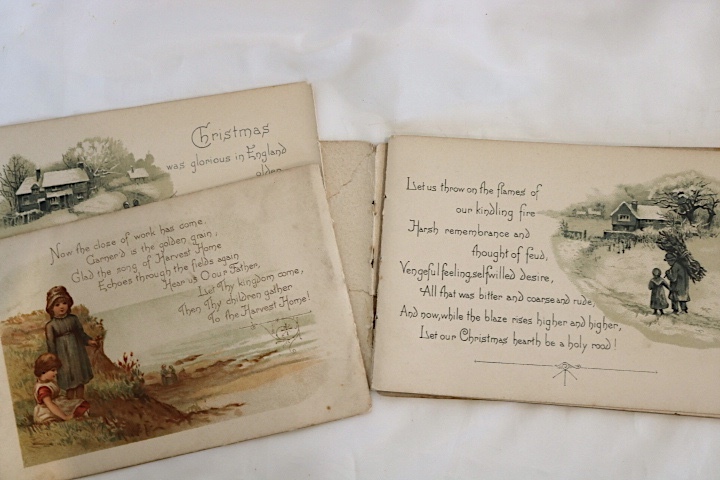 Christmas
was glorious in England
olden
Now the close of work has come,
Garner'd is the golden grain,
Glad the song of Harvest Home
Echoes through the fields again
Hear us O our Father,
Let Thy kingdom come,
Then Thy children gather
To the Harvest Home!
Let us throw on the flames of
our kindling fire
Harsh remembrance and
thought of feud,
Vengeful feeling, selfwilled desire,
All that was bitter and coarse and rude,
And now, while the blaze rises higher and higher,
Let our Christmas hearth be a holy rood!